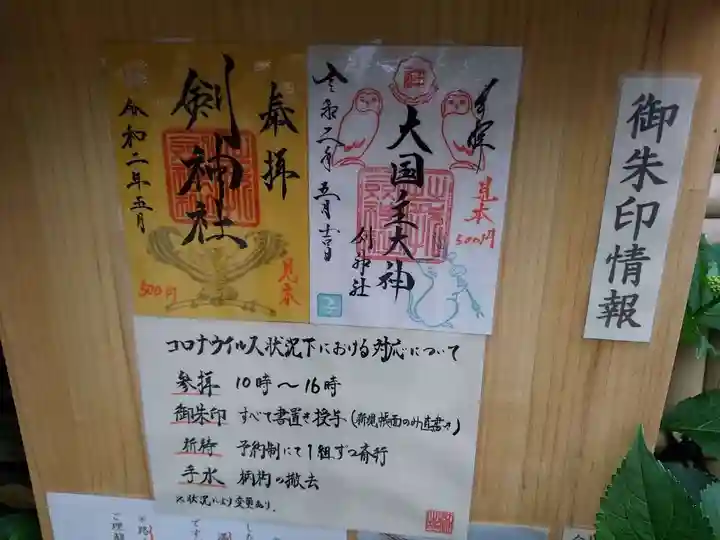 御朱印情報
奉拝
剣神社
令和二年五月
見本
500円
奉拝
大国主大神
剣神社
令和二年五月吉日
見本
500円
コロナウイルス状況下における対応について
参拝 10時〜16時
御朱印 すべて書置き授与(新規帳面のみ直書き)
祈祷 予約制にて1組ずつ斎行
手水 柄杓の撤去
※状況により変更あり。